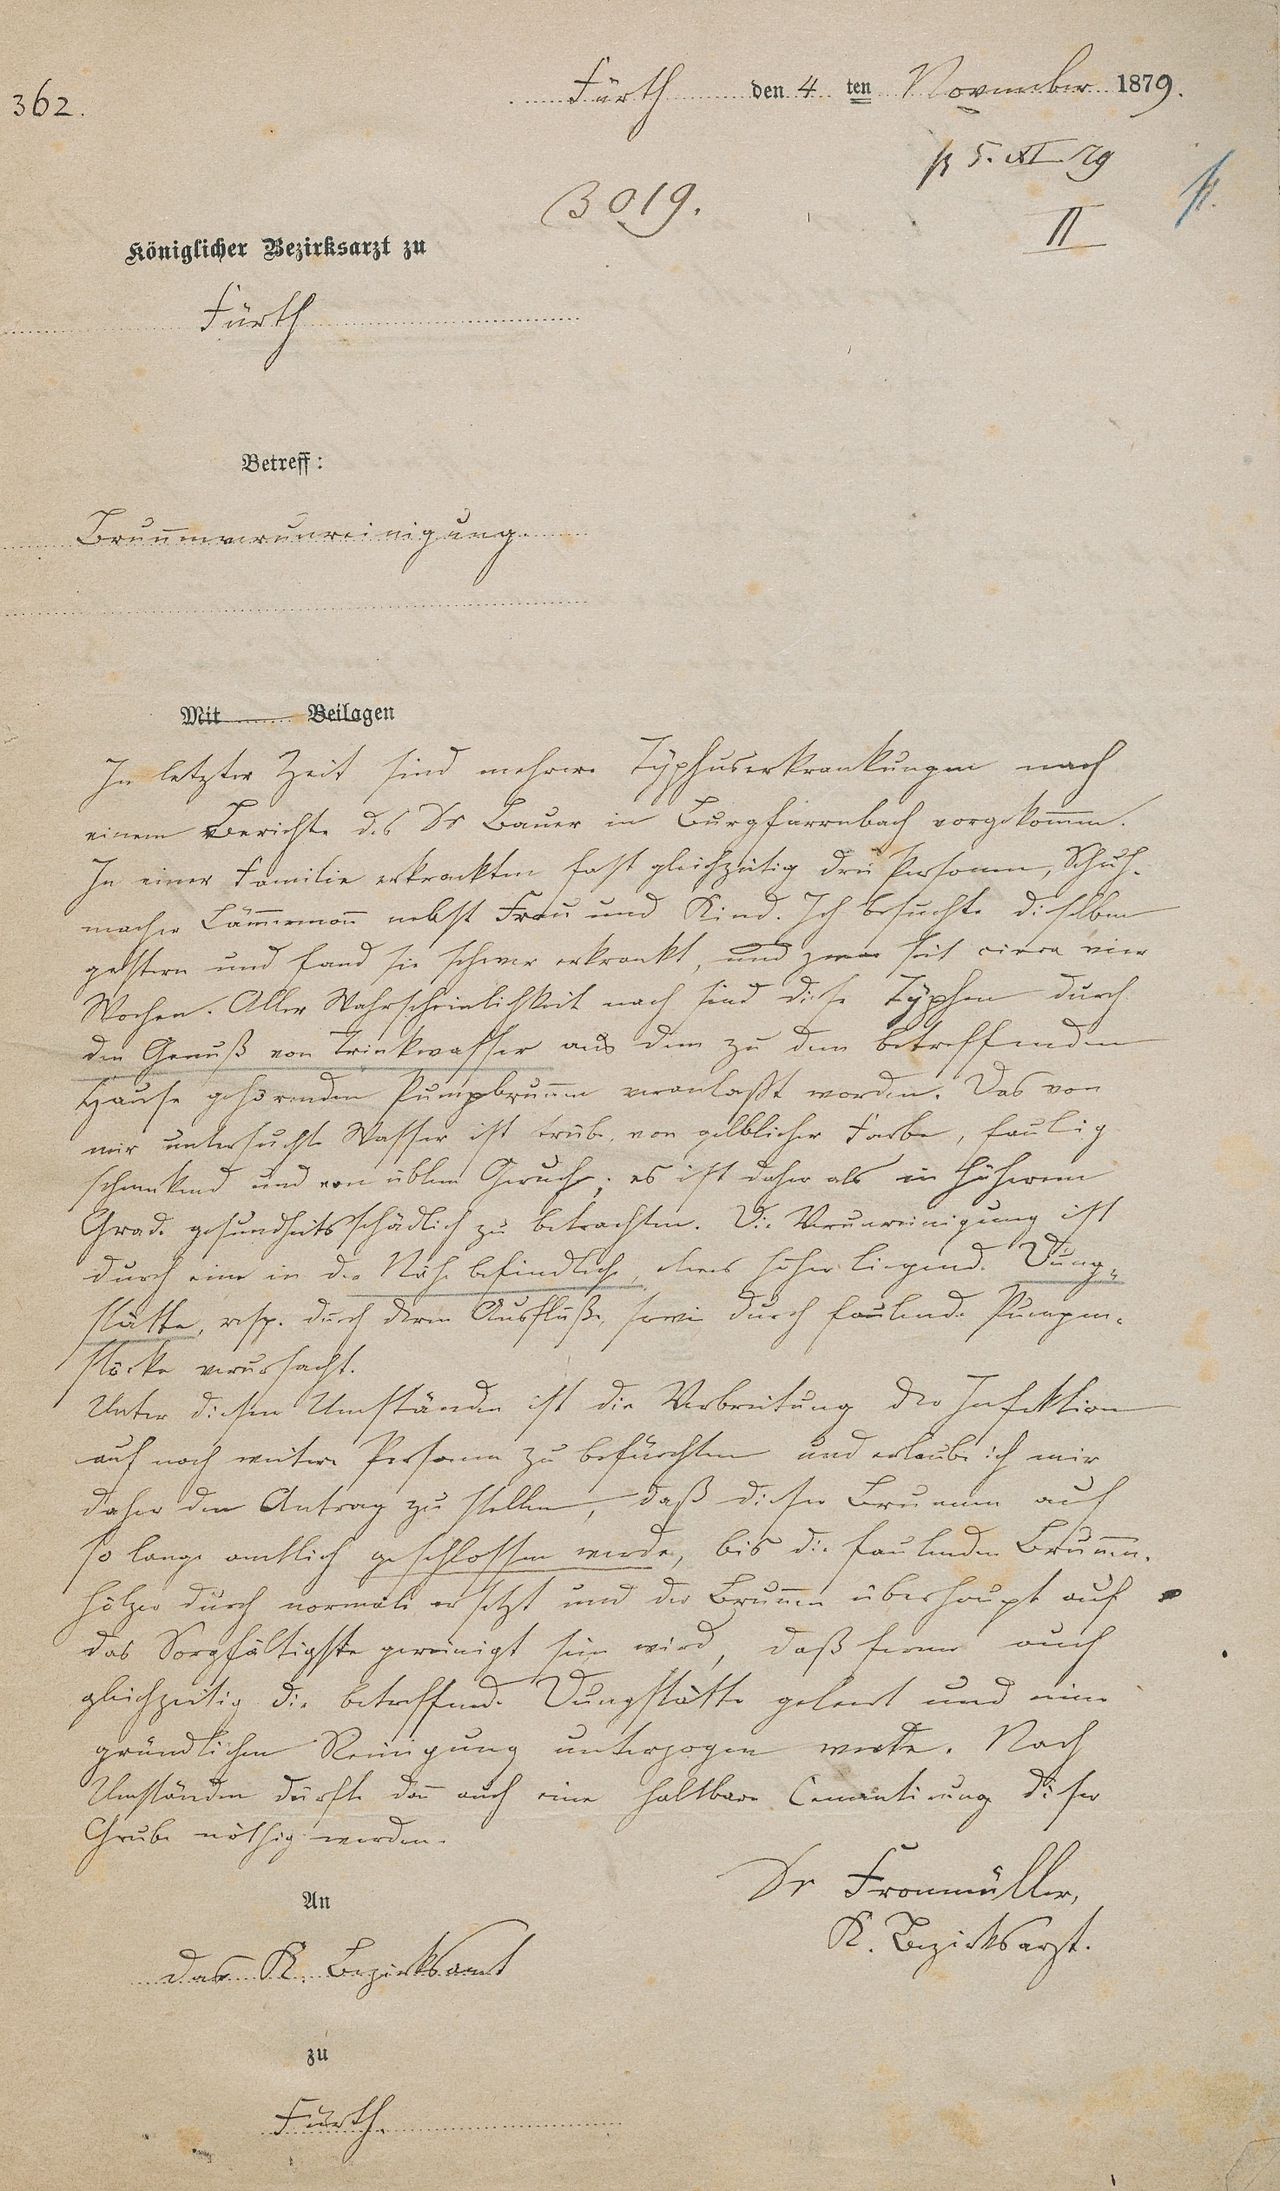 362.
Fürth den 4 ten November 1879.
5. XI. 79
3019.
II
Königlicher Bezirksarzt zu
Fürth
Betreff:
Brunnenverunreinigung.
Mit Beilagen
In letzter Zeit sind mehrere Typhuserkrankungen nach
einem Berichte des Dr Bauer in Burgfarrnbach vorgekommen.
In einer Familie erkrankten fast gleichzeitig drei Personen, Schuh-
macher Lämmermann nebst Frau und Kind. Ich besuchte dieselben
gestern und fand sie schwer erkrankt, und zwar seit circa vier
Wochen. Aller Wahrscheinlichkeit nach sind diese Typhen durch
den Genuß von Trinkwasser aus dem zu dem betreffenden
Hause gehörenden Pumpbrunnen veranlaßt worden. Das von
mir untersuchte Wasser ist trübe, von gelblicher Farbe, faulig
schmekend und von üblem Geruch; es ist daher als in höherem
Grade gesundheitsschädlich zu betrachten. Die Verunreinigung ist
durch eine in der Nähe befindliche, etwas höher liegende Dung-
stätte, resp. durch deren Ausflüße, sowie durch faulende Pumpen-
stöcke verursacht.
Unter diesen Umständen ist die Verbreitung der Infektion
auf noch weitere Personen zu befürchten und erlaube ich mir
daher den Antrag zu stellen, daß dieser Brunnen auf
so lange amtlich geschlossen werde, bis die faulenden Brunnen-
hölzer durch normale ersetzt und der Brunnen überhaupt auf
das Sorgfältigste gereinigt sein wird, daß ferner auch
gleichzeitig die betreffende Dungstätte geleert und einer
gründlichen Reinigung unterzogen werde. Nach
Umständen dürfte dann auch eine haltbare Cementirung dieser
Grube nöthig werden.
Dr Fronmüller,
K. Bezirksarzt.
An
das K. Bezirksamt
zu
Fürth.